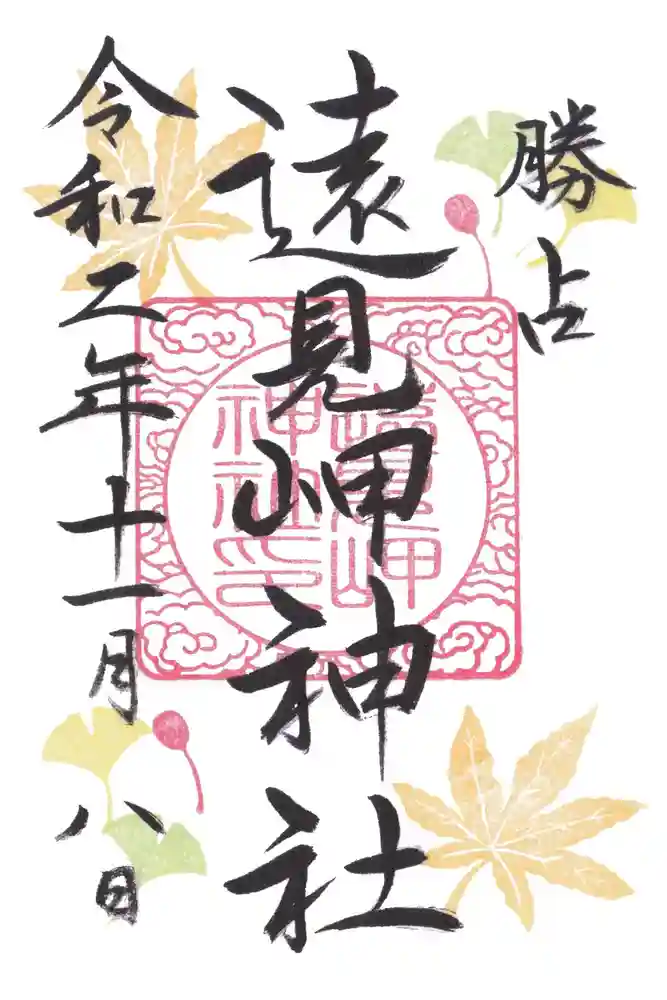 勝占
遠見岬神社
令和二年十一月八日
遠見岬
神社印